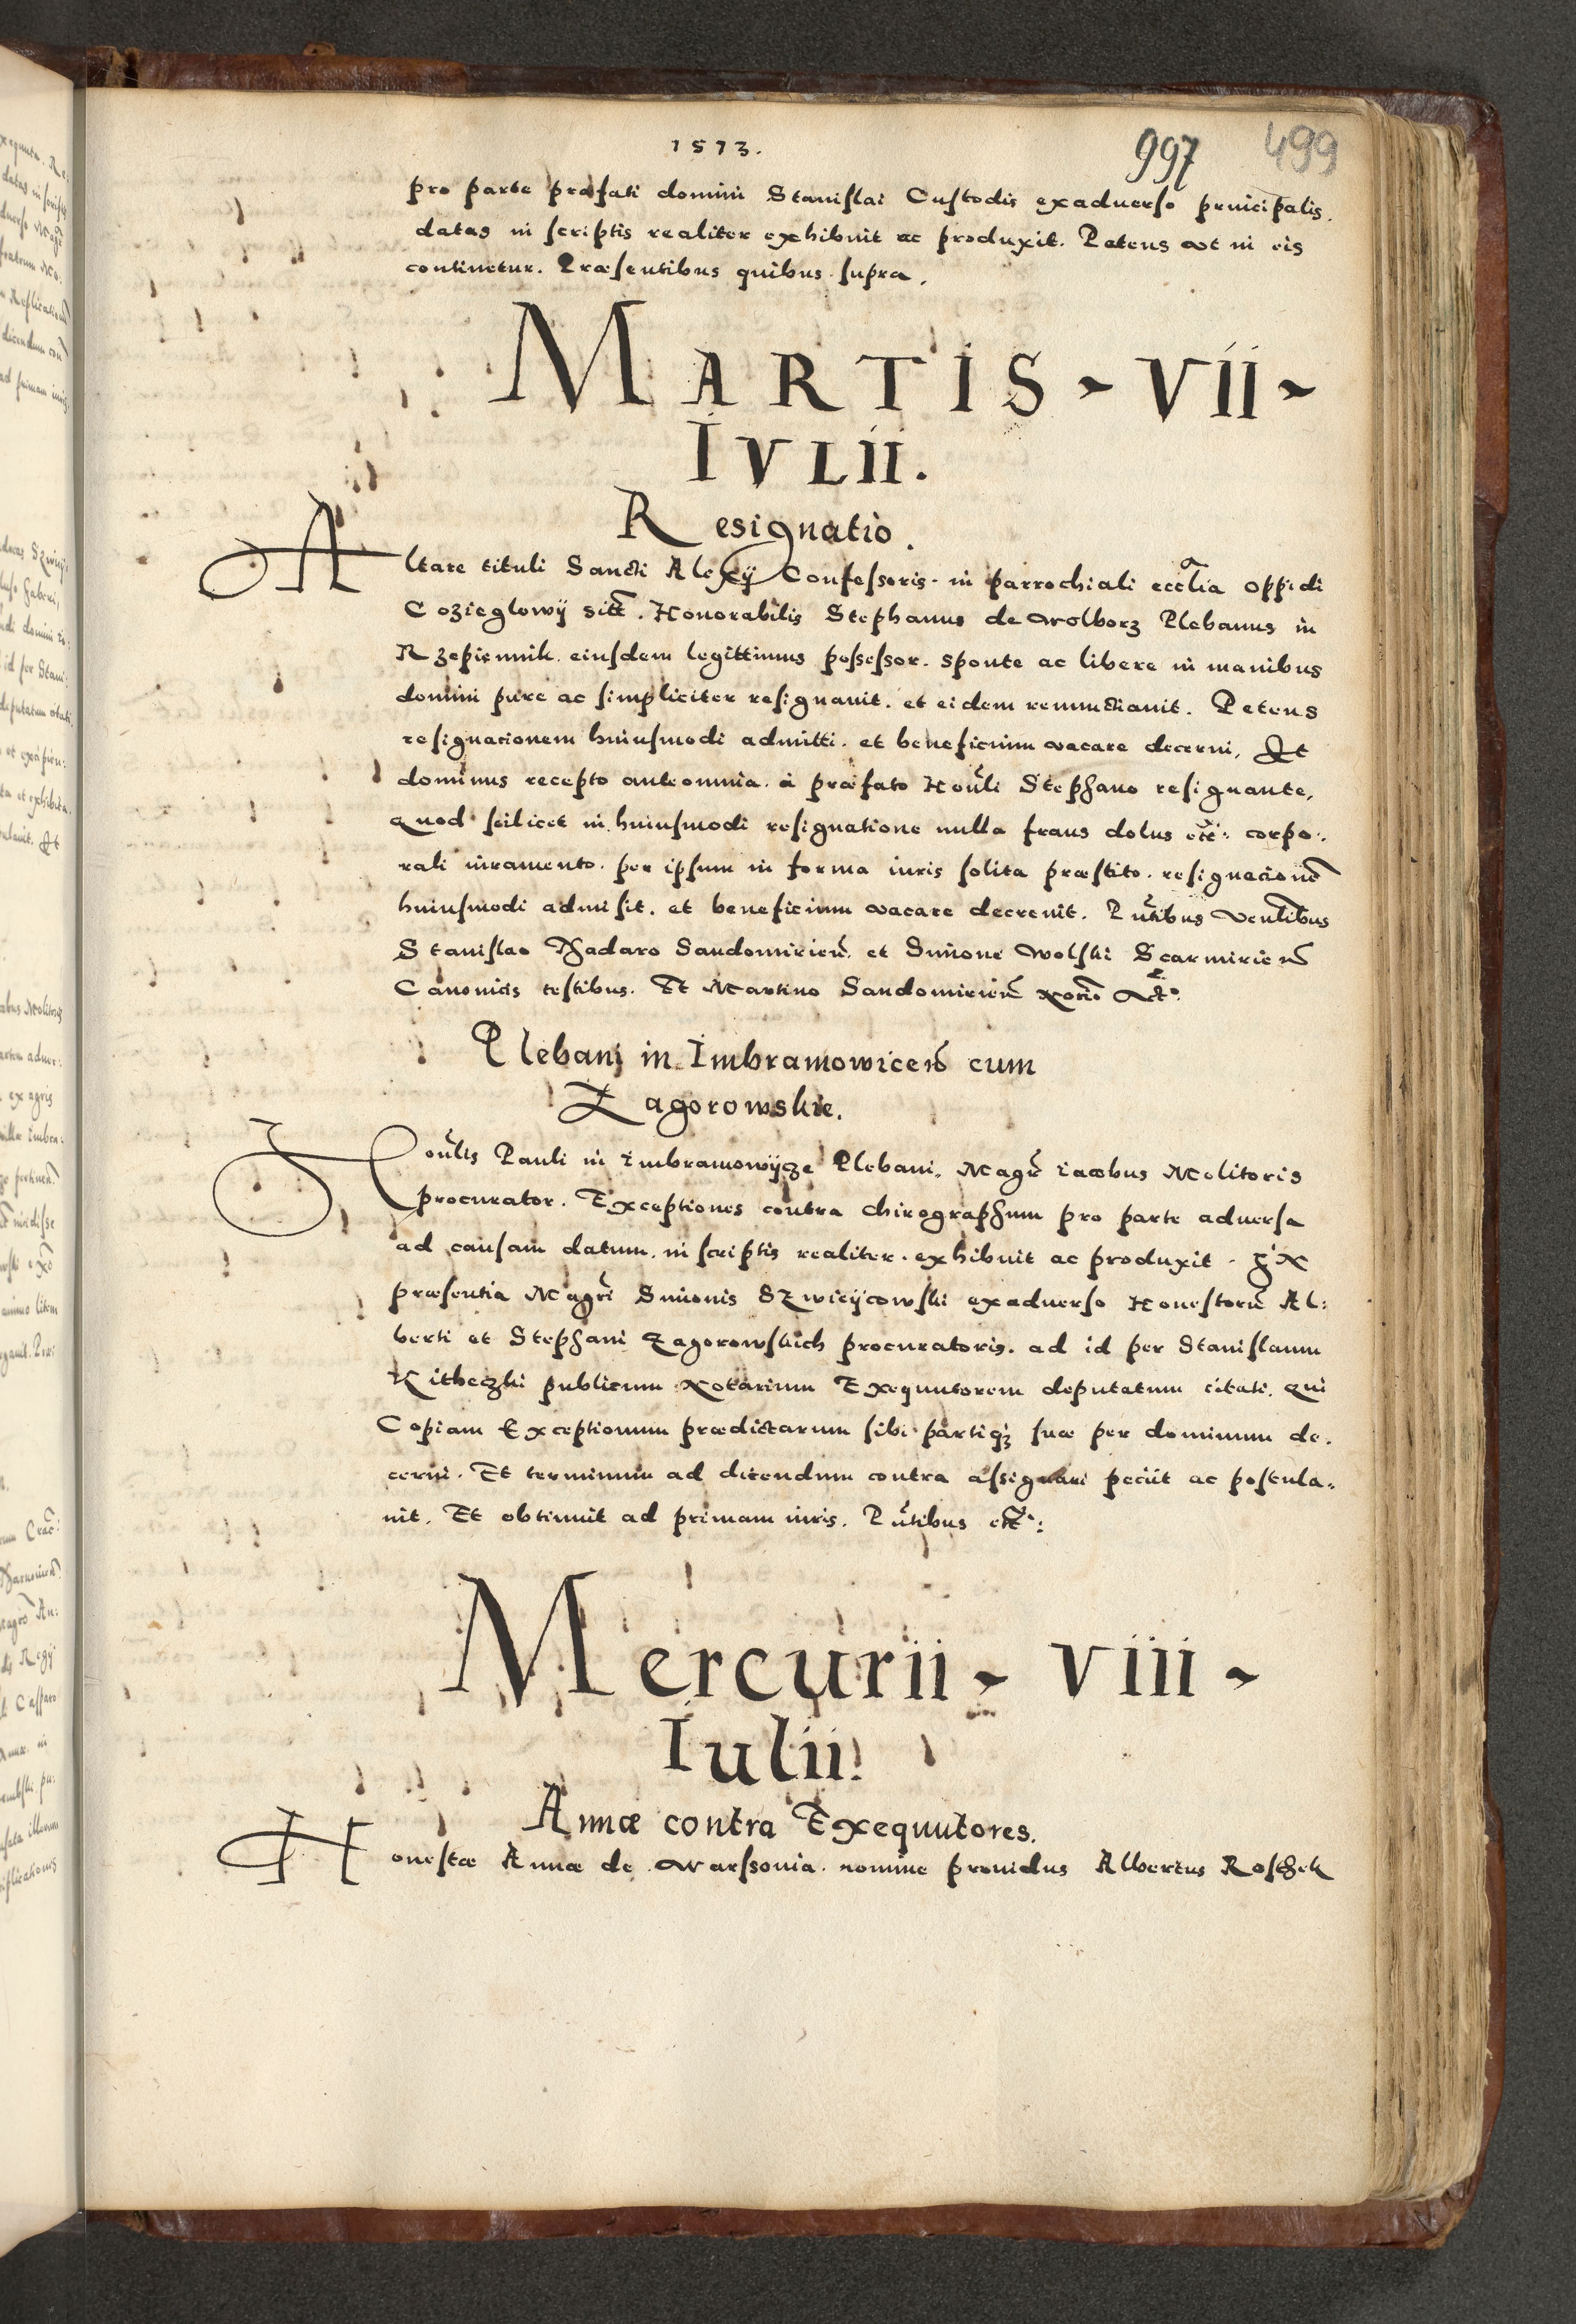 1573.
997 499
pro parte præfati domini Stanislai Custodis exaduerso principalis.
datas in scriptis realiter exhibuit ac produxit. Petens vt in eis
continetur. Præsentibus quibus supra.
MARTIS - VII -
IVLII.
Resignatio.
Altare tituli Sancti Alexij Confessoris. in parrochiali eccłia oppidi
Cozieglowij sitt̃. Honorabilis Stephanus de Wolborz Plebanus in
Rzepiennik. eiusdem legittimus possessor. sponte ac libere in manibus
domini pure ac simpliciter resignauit. et eidem renunctiauit. Petens
resignacionem huiusmodi admitti. et beneficium vacare decerni, Et
dominus recepto anteomnia. à præfato Honr̃li Stephano resignante,
quod scilicet in huiusmodi resignatione nulla fraus dolus etc̃: corpo:
rali iuramento. per ipsum in forma iuris solita præstito. resignacionẽ
huiusmodi admisit. et beneficium vacare decreuit. Pñtibus Venłibus
Stanislao Thadaro Sandomirieñ. et Simone Wolski Scarmirieñ
Canonicis testibus. Et Martino Sandomirieñ Notrõ Act̃.
Plebani in Imbramowiceñ cum
Zagorowskie.
Honr̃lis Pauli in Imbramowijcze Plebani, Magr̃ Iacobus Molitoris
procurator. Exceptiones contra chirographum pro parte aduersa
ad causam datum. in scriptis realiter. exhibuit ac produxit.
præsentia Magr̃i Simonis Szwieijcowski exaduerso Honestorũ Al:
berti et Stephani Zagorowskich procuratoris. ad id per Stanislaum
Kitheczki publicum Notarium Exequutorem deputatum citati. qui
Copiam Exceptionum prædictarum sibi partiqz suæ per dominum de.
cerni. Et terminum ad dicendum contra assignari peciit ac postula-
uit. Et obtinuit ad primam iuris. Pñtibus etc̃:
Mercurii - viii -
Iulii.
Annæ contra Exequutores.
Honestæ Annæ de Warssouia. nomine prouidus Albertus Roschek